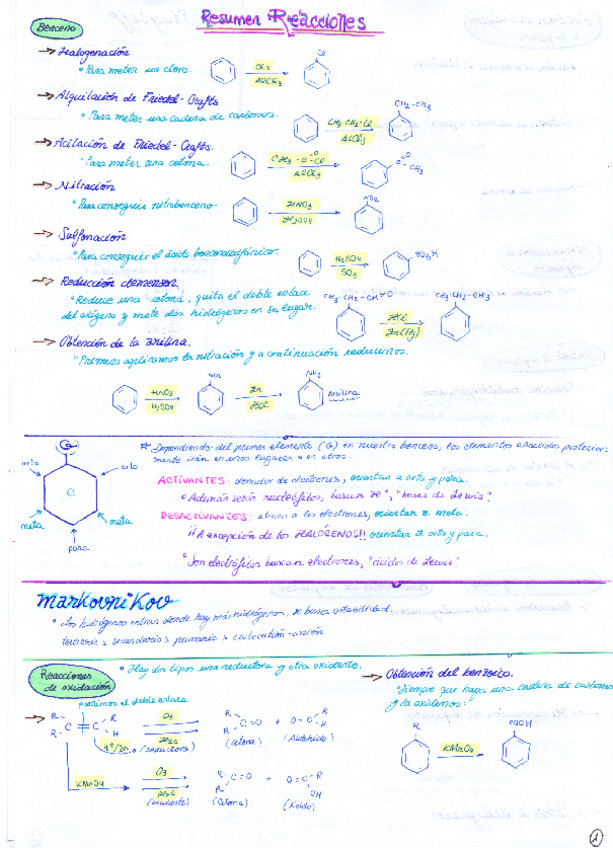 Resumen Reacciones
Benceno
→ Halogenación
° Para meter un cloro.
Cl2
AlCl3
Cl
→ Alquilación de Friedel-Crafts
° Para meter una cadena de carbonos.
CH3-CH2-Cl
AlCl3
CH2-CH3
→ Acilación de Friedel-Crafts.
° Para meter una cetona.
AlCl3
CH3
→ Nitración
° Para conseguir nitrobenceno
HNO3
H2SO4
NO2
→ Sulfonación
° Para conseguir el ácido bencenosulfónico.
H2SO4
SO3
SO3H
→ Reducción clemensen
° Reduce una cetona, quita el doble enlace
del oxígeno y mete dos hidrógenos en su lugar.
HCl
Zn(Hg)
CH2-CH2-CH3
→ Obtención de la anilina.
° Primero aplicamos la nitración y a continuación reducimos.
HNO3
H2SO4
NO2
Zn
HCl
NH2
Anilina
G
orto
orto
meta
meta
para
* Dependiendo del primer elemento (G) en nuestro benceno, los elementos añadidos posterior-
mente irán en unos lugares o en otros.
ACTIVANTES: donador de electrones, orientan a orto y para.
° Además serán nucleófilos, buscan H+, "bases de Lewis"
DESACTIVANTES: atraen a los electrones, orientan a meta.
¡¡A excepción de los HALÓGENOS!! orientan a orto y para.
° Son electrófilos buscan electrones, "ácidos de Lewis"
Markovnikov
° Los hidrógenos entran donde hay más hidrógenos, se busca estabilidad.
terciario > secundario > primario > carbocatión-anión
Reacciones
de oxidación
° Hay dos tipos una reductora y otra oxidante.
partimos el doble enlace
→ R R
R C=C H
O3
H2O
H+/Zn (reductora)
R
R C=O + O=C R
H
(Cetona) (Aldehído)
KMnO4
O3
H2O
(oxidante)
R
R C=O + O=C R
OH
(Cetona) (Ácido)
→ Obtención del benzoico.
Siempre que haya una cadena de carbonos
y la oxidemos:
R
KMnO4
1